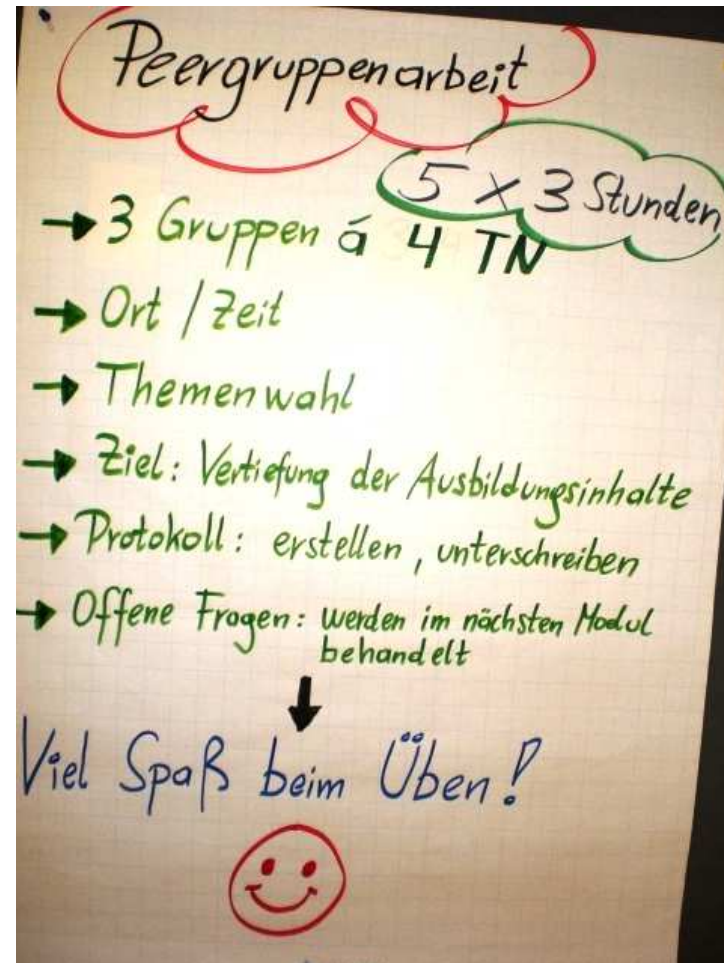 Peergruppenarbeit
5 x 3 Stunden
→ 3 Gruppen á 4 TN
→ Ort / Zeit
→ Themenwahl
→ Ziel: Vertiefung der Ausbildungsinhalte
→ Protokoll: erstellen, unterschreiben
→ Offene Fragen: werden im nächsten Modul
behandelt
Viel Spaß beim Üben!